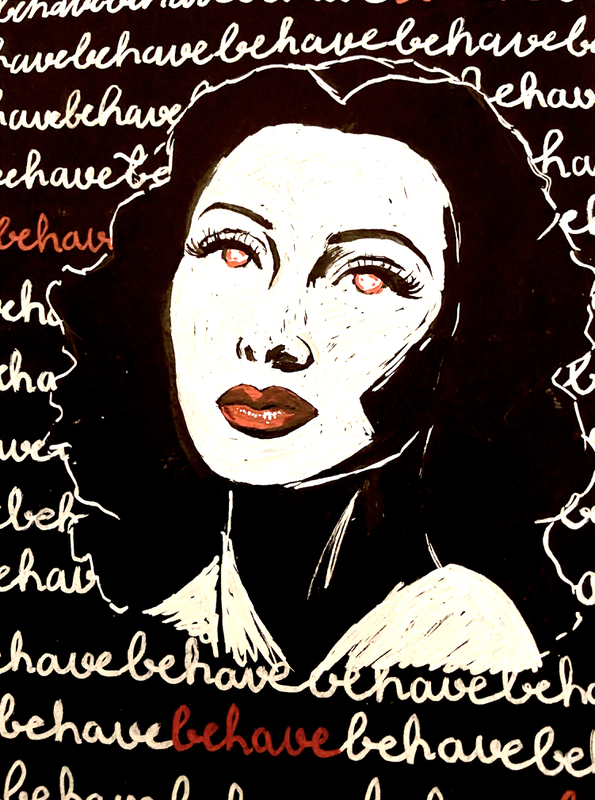 behavebehave
havebehavebehavebehavebe
havebehave ehav
behavebe ha
behav eh
beha
eha b
ave
beh b
ehav a
ehavebehavebehavebeha
behavebehavebehavebe
behave